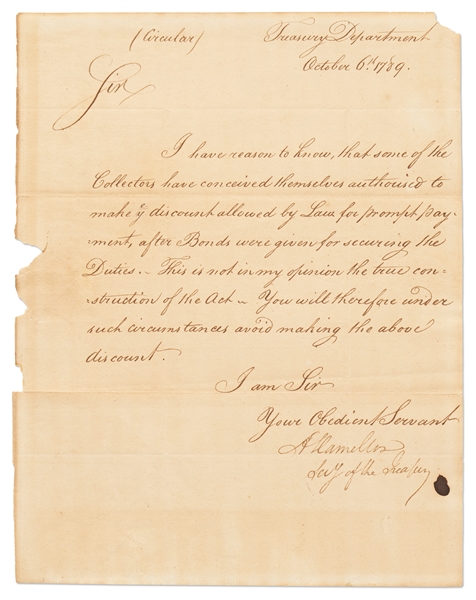 (Circular) Treasury Department
October 6th. 1789.
Sir
I have reason to know, that some of the
Collectors have conceived themselves authorised to
make ye discount allowed by Law for prompt pay-
ment, after Bonds were given for securing the
Duties. – This is not in my opinion the true con-
struction of the Act – You will therefore under
such circumstances avoid making the above
discount.
I am Sir
Your Obedient Servant
A Hamilton
Secy of the Treasury